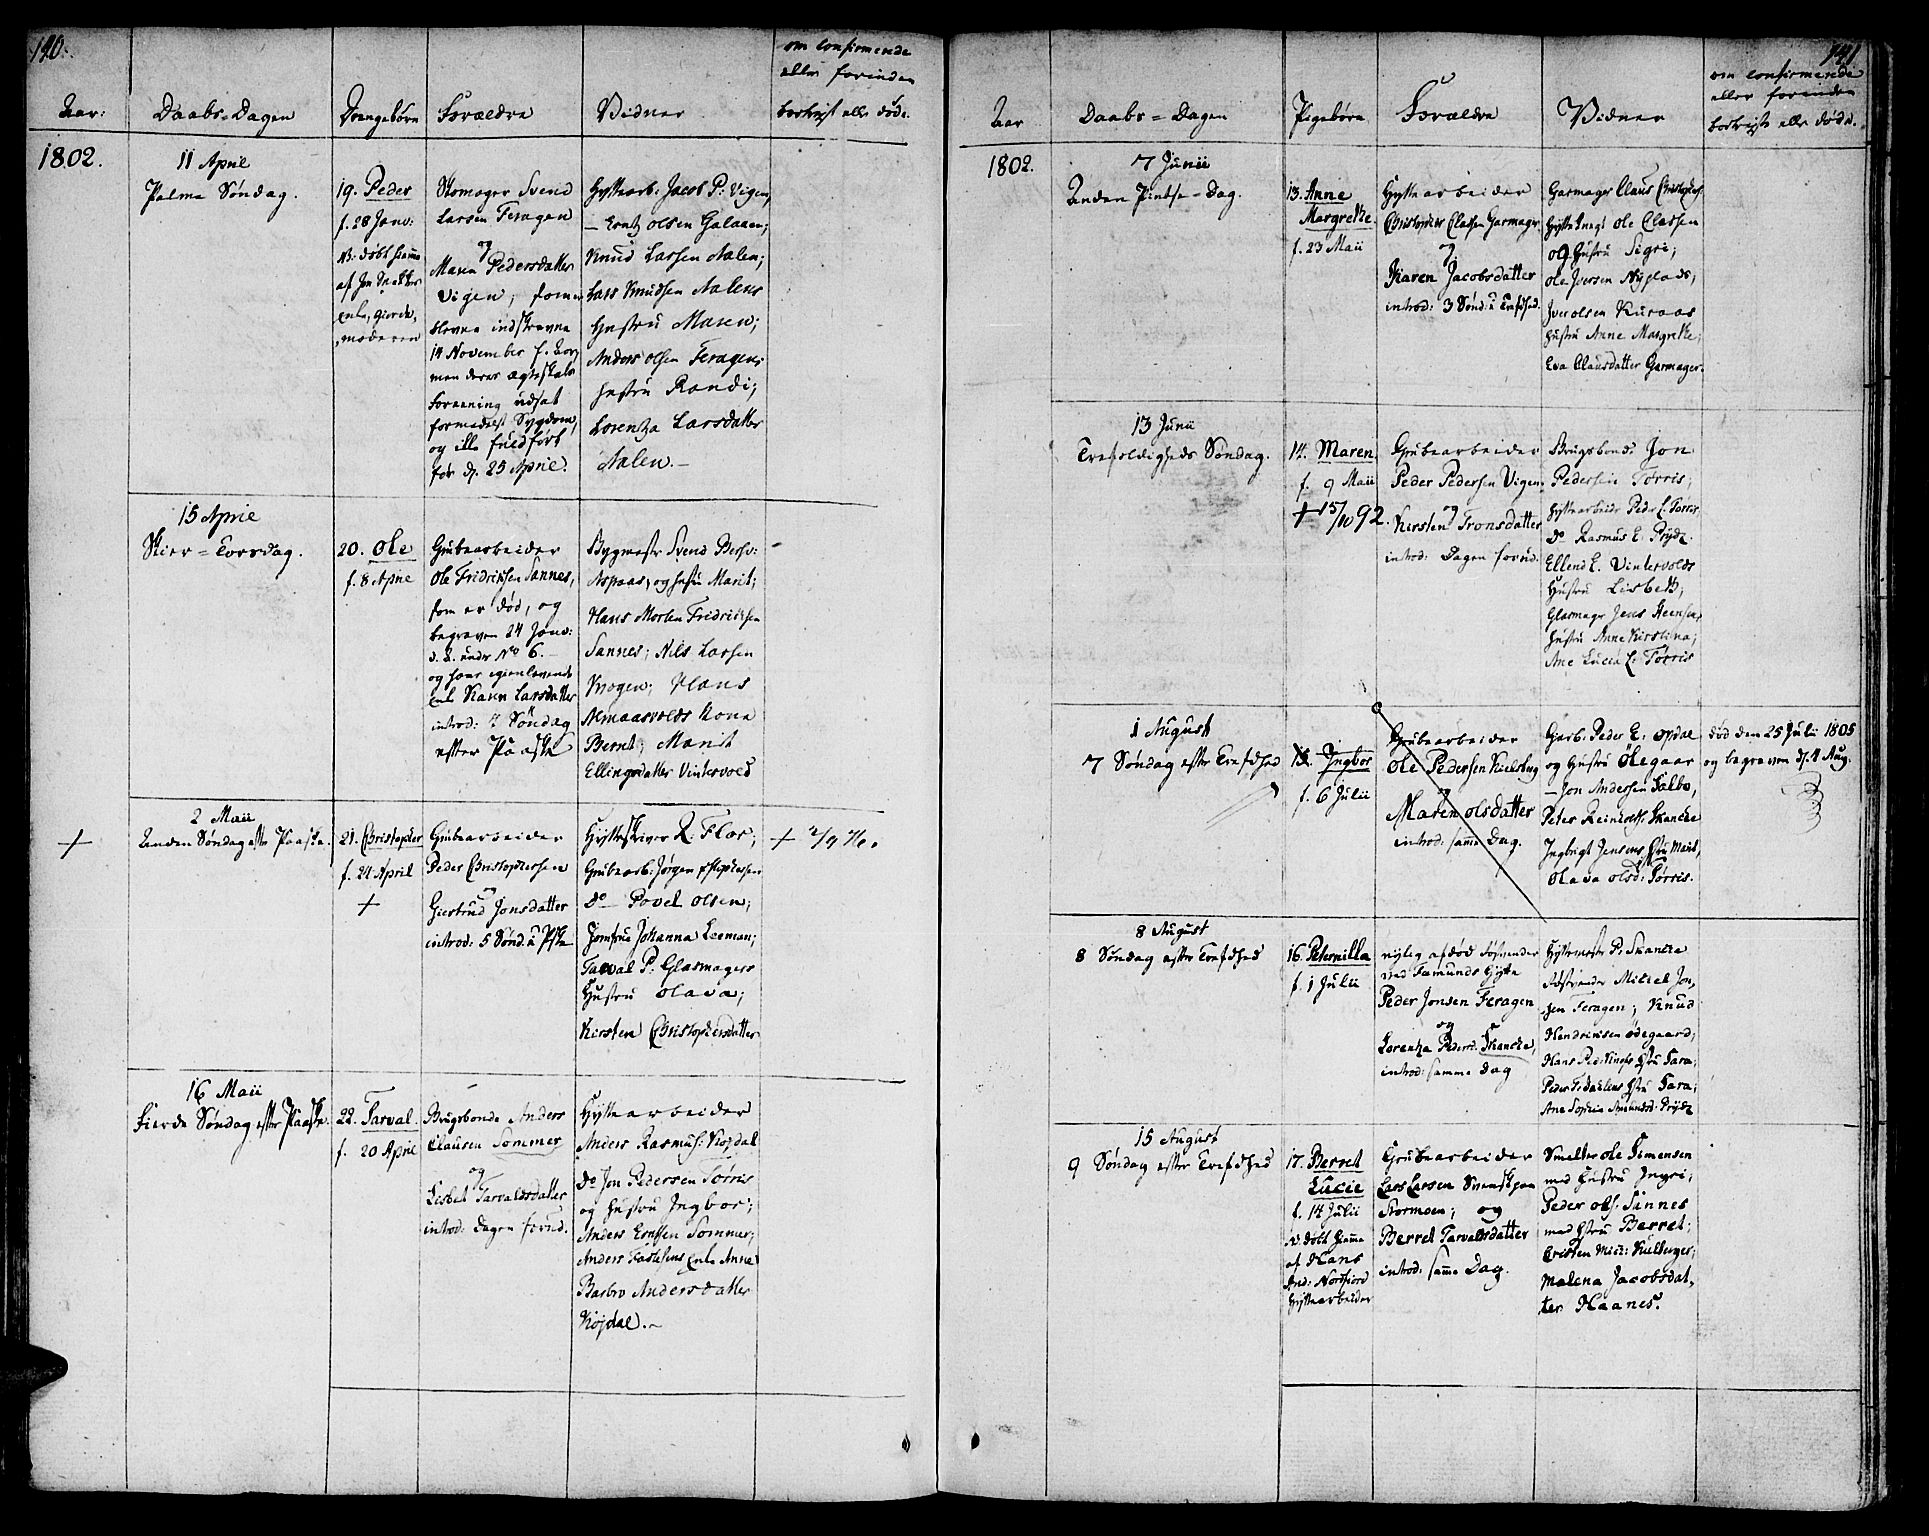 140.
Aar:
Daabs-Dagen
Drengebørn
Forældre
Vidner
om confirmerede
eller forinden
bortreist eller døde.
1802.
11 April
Palma Søndag.
19. Peder
f. 28 Janv:
NB: døbt hiemme
Skomager Svend
Larsen Feragen
og
Maren Pedersdatter
Vigen, som
blevne indskrevne
14 November f. Aar,
men deres ægteskabs
Foreening udsat
formedelst Sygdom,
og ille fuldført
før d. 25 April.
Hyttearb: Jacob P: Vigen,
— Erntz Olsen Galaaen;
Knud Larsen Aalen;
Lars Knudsen Aalens
Hustru Maren;
Anders Olsen Feragens
Hustru Randi;
Lorentza Larsdatter
Aalen.—
15 April
Skier-Torsdag.
20. Ole
f. 8 April
Grubearbeider
Ole Fridriksen Sannes,
som er død, og
begraven 24 Janv:
d. A. under No 6.—
og hans igienlevende
Enke Karen Larsdatter
introd: 2 Søndag
efter Paaske
Bygmester Svend Bersv:
Aspaas, og Hustru Marit;
Hans Morten Fridriksen
Sannes; Nils Larsen
Krogen; Hans
Almaasvolds Kone
Beret; Marit
Ellingsdatter Vintervold
+
2 Maii
Anden Søndag efter Paaske.
21. Christopher
f. 24 April
+
Grubearbeider
Peder Christophersen
og
Giertrud Jonsdatter
introd: 5 Sønd: a Pske
Hytteskriver R. Flor;
Grubearb: Jørgen Xstophersen
do Povel Olsen;
Jomfrue Johanna Leeman;
Tarval P: Glasmagers
Hustru Olava;
Kirsten Christophersdatter
16 Maii
Fierde Søndag efter Paaske.
22. Tarval.
f. 20 April
Brugsbonde Anders
Clausen Sommer
og
Lisbet Tarvaldsdatter
introd: Dagen forud.
Hyttearbeider
Anders Rasmus: Kojdal
do Jon Pedersen Torris
og Hustru Ingbor;
Anders Erntsen Sommer;
Anders Fastesens Enke Anne
Barbro Andersdatter
Kojdal.—
141
Aar
Daabs-Dagen
Pigebørn
Forældre
Vidner
om confirmerede
eller forinden
bortreiste eller døde.
1802.
7 Junii
Anden Pintse-Dag.
13. Anne
Margrethe.
f. 23 Maii
Hyttearbeider
Christopher Clasen Garmager
og
Karen Jacobsdatter
introd: 3 Sønd: a Trefdhed.
Garmager Claus Christophers:
Ole Classen
og Hustru Sigri;
Ole Iversen Nyplads;
Iver Olsen Kuraas
Hustru Anne Margrethe;
Eva Clausdatter Garmager.
13 Junii
Trefoldigheds Søndag.
14. Maren
f. 9 Maii
+ 15/10 92.
Grubearbeider
Peder Pedersen Vigen
og
Kirsten Tronsdatter
introd: Dagen forud.
Brugsbond: Jon
Pedersen Torris;
Hyttearbeider Peder L. Torris,
do Rasmus E. Prydz.
Ellend E. Vintervolds
Hustru Lisbeth;
Glasmager Jens Steensens
Hustru Anne Kirstina;
Ane Lucia L. Torris
1 August
7 Søndag efter Trefdhed
15. Ingbor
f. 6 Julii
Grubearbeider
Ole Pedersen Kielsberg
og
Maren Olsdatter
introd: samme Dag.
Garb: Peder E: Opdal
og Hustru Olegaar
— Jon Andersen Galbo,
Peter Reinholds: Skancke
Ingbrigt Jensens Hstru Marit,
Olava Olsd: Torris.
død den 25 Juli 1805
og begraven d. 4 Aug.
8 August
8 Søndag efter Trefdhed
16. Peternilla
f. 1 Julii
nylig afdød
ved Fæmunds Hytte
Peder Jonsen Feragen
og
Lorentza Pedersd: Skancke,
introd: samme Dag
Hyttemester P. Skancke
Mickel Jon,
sen Feragen; Knud
Hendricksen Ødegaard;
Hans Ped: Hustru Sara;
Hstru Sara;
Ane Sophia Amundsd: Prydz
15 August
9 Søndag efter Trefdhed
17. Berret
Lucie
f. 14 Julii
N. døbt hiemme
af Hans
And: Nordfiord
Hyttearbeider
Grubearbeider
Lars Larsen Svenskpaa
Stormoen; og
Berret Tarvaldsdatter
introd: samme Dag.
Smelter Ole Simensen
med Hustru Ingri;
Peder Ols: Sannes
med Hstru Berret;
Cristen Mich:
Malena Jacobsdat,
ter Haanes.